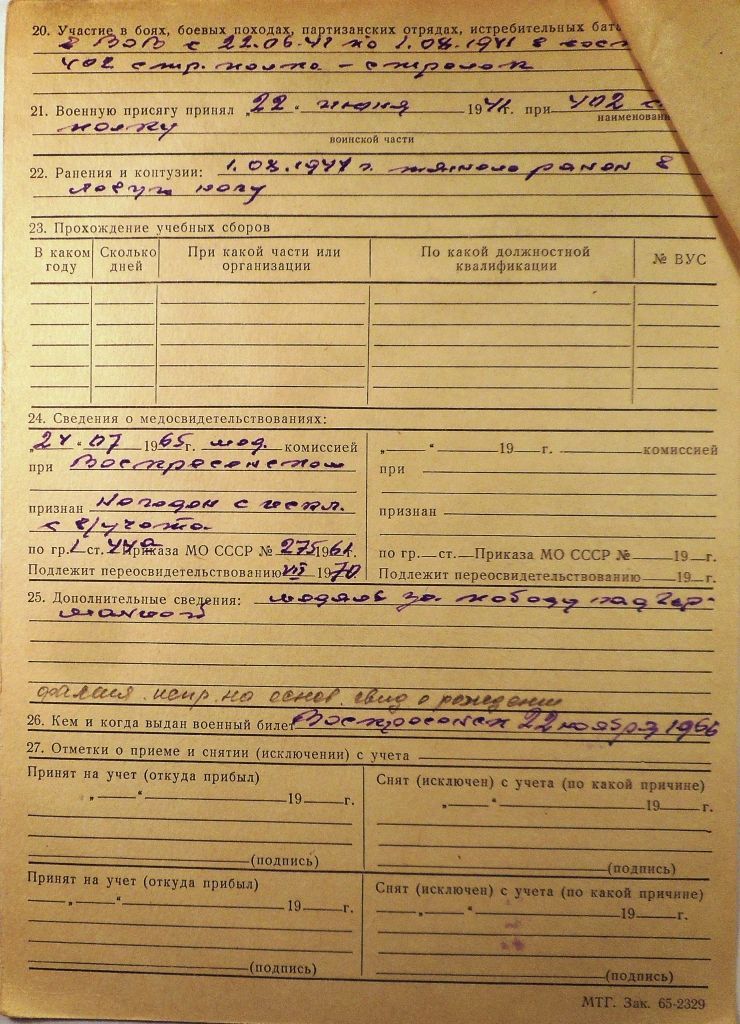 20. Участие в боях, боевых походах, партизанских отрядах, истребительных бата
в ВОВ с 22.06.41 по 1.08.1941 в сост
402 стр. полка – стрелок
21. Военную присягу принял „22“ июня 1941г. при 402 с.
наименовани
полку
воинской части
22. Ранения и контузии: 1.08.1941 г. тяжело ранен в
левую ногу
23. Прохождение учебных сборов
В каком году Сколько дней При какой части или организации По какой должностной квалификации № ВУС
24. Сведения о медосвидетельствованиях:
„24“ 07 1965г. мед. комиссией
при Воскресенском
признан Негоден с искл.
с в/учета
по гр. I ст. 44а Приказа МО СССР № 275 1961г.
Подлежит переосвидетельствованию VII 1970г.
„ “ 19 г. комиссией
при
признан
по гр. ст. Приказа МО СССР № 19 г.
Подлежит переосвидетельствованию 19 г.
25. Дополнительные сведения: медаль за победу над Гер-
манией
фамилия испр. на основ. свид о рождении
26. Кем и когда выдан военный билет Воскресенск 22 ноября 1966
27. Отметки о приеме и снятии (исключении) с учета
Принят на учет (откуда прибыл)
„ “ 19 г.
(подпись)
Снят (исключен) с учета (по какой причине)
„ “ 19 г.
(подпись)
Принят на учет (откуда прибыл)
„ “ 19 г.
(подпись)
Снят (исключен) с учета (по какой причине)
„ “ 19 г.
(подпись)
МТГ. Зак. 65-2329